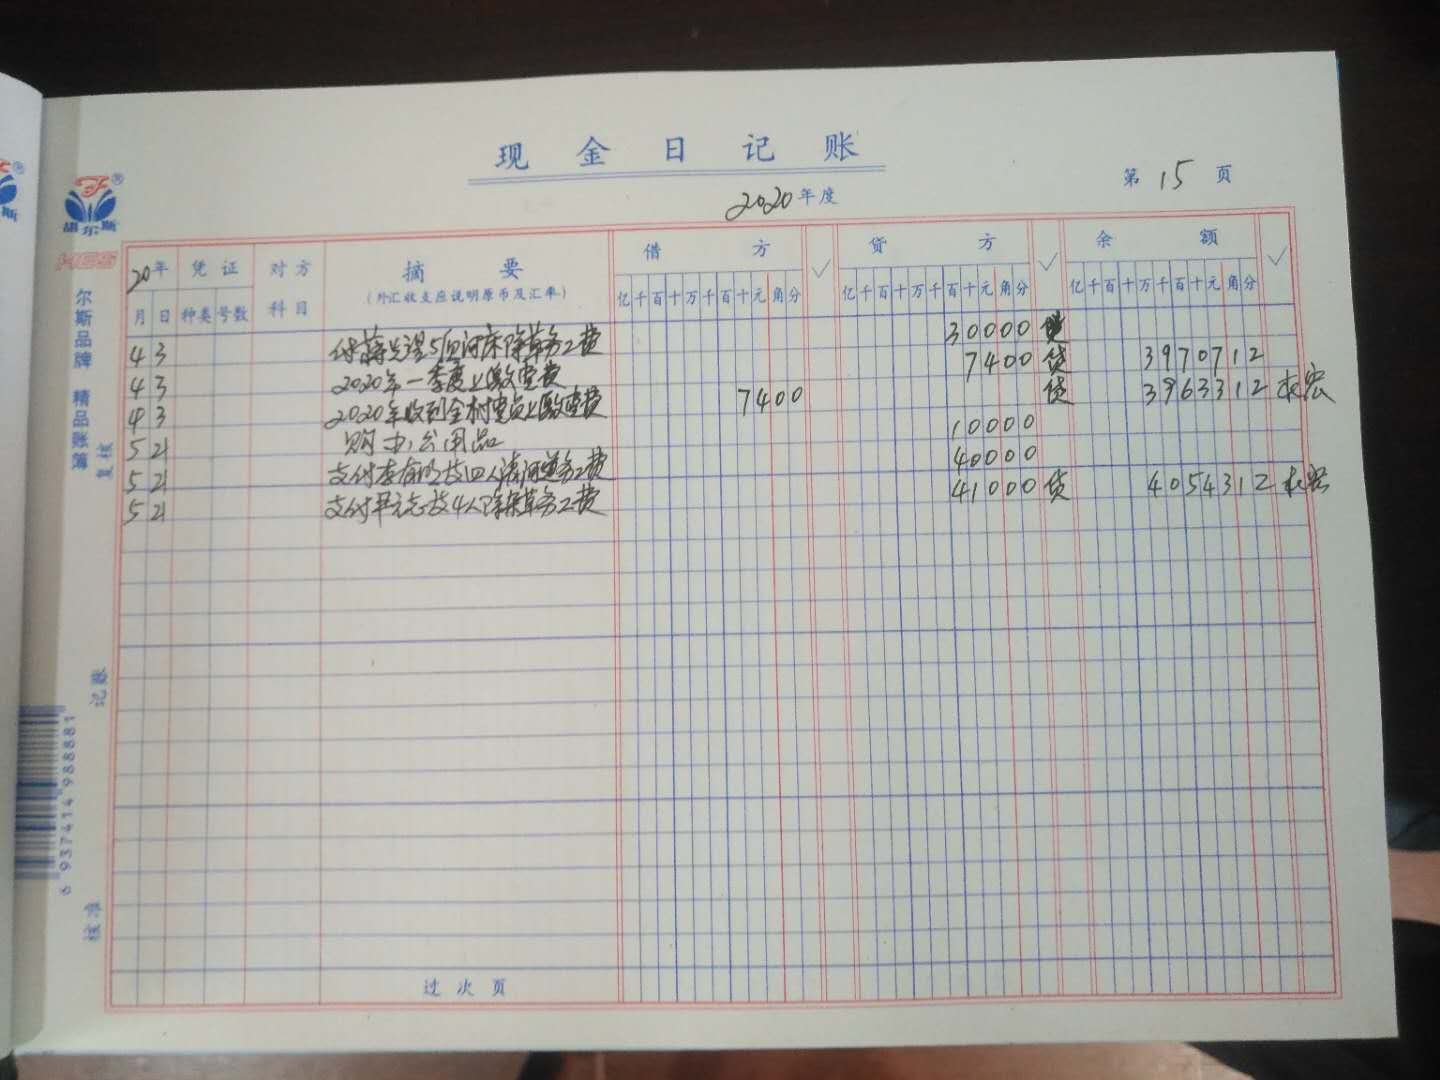 现金日记账
2020年度
第15页
胡尔斯
HCS
20年 凭证 对方科目 摘要 借方 ✓ 贷方 ✓ 余额 ✓
(外汇收支应说明原币及汇率)
月 日 种类 号数 亿千百十万千百十元角分 亿千百十万千百十元角分 亿千百十万千百十元角分
4 3 除草务工费 30000
4 3 2020年一季度上缴党费 7400 贷 3970712
4 3 2020年收到全村党员上缴党费 7400 贷 3963312
5 21 购办公用品 10000
5 21 支付李 四人清河道务工费 40000
5 21 支付 4人除杂草务工费 41000 贷 4054312
过次页
尔斯品牌 精品账簿
复核
记账
核准
6 937414 988881